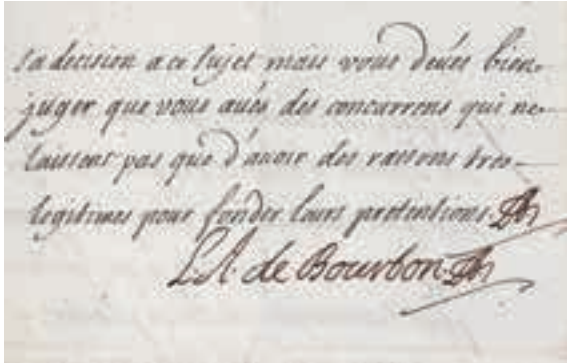 sa decision a ce sujet mais vous devés bien
juger que vous avés des concurrens qui ne
laissent pas que d'avoir des raisons tres
legitimes pour fonder leurs pretentions
L. A. de Bourbon